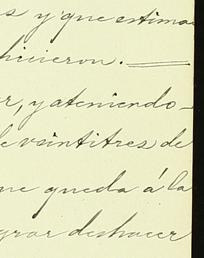 s y que estima-
hicieron.
r, y ateniendo-
de veintitres de
ne queda á la
grar deshacer